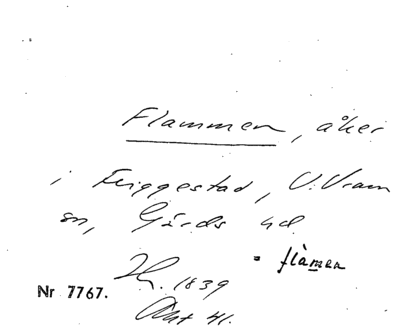 Flammen, åker
i Friggestad, V. Vram
sn, Gärds hd
= flàmen
1839
Nr 7767.
Akt 41.